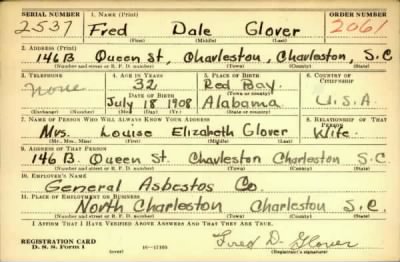 SERIAL NUMBER 1. NAME (Print) ORDER NUMBER
2537 Fred Dale Glover 2061
(First) (Middle) (Last)
2. ADDRESS (Print)
146 B Queen St, Charleston, Charleston, S.C
(Number and street or R. F. D. number) (Town) (County) (State)
3. TELEPHONE 4. AGE IN YEARS 5. PLACE OF BIRTH 6. COUNTRY OF CITIZENSHIP
None 32 Red Bay.
DATE OF BIRTH (Town or county)
July 18 1908 Alabama U.S.A.
(Exchange) (Number) (Mo.) (Day) (Yr.) (State or country)
7. NAME OF PERSON WHO WILL ALWAYS KNOW YOUR ADDRESS 8. RELATIONSHIP OF THAT PERSON
Mrs. Louise Elizabeth Glover Wife.
(Mr., Mrs., Miss) (First) (Middle) (Last)
9. ADDRESS OF THAT PERSON
146 B. Queen St. Charleston Charleston S.C
(Number and street or R. F. D. number) (Town) (County) (State)
10. EMPLOYER'S NAME
General Asbestos Co.
11. PLACE OF EMPLOYMENT OR BUSINESS
North Charleston Charleston S.C.
(Number and street or R. F. D. number) (Town) (County) (State)
I AFFIRM THAT I HAVE VERIFIED ABOVE ANSWERS AND THAT THEY ARE TRUE.
REGISTRATION CARD
D. S. S. Form 1 (over) 16—17105 Fred D. Glover
(Registrant's signature)